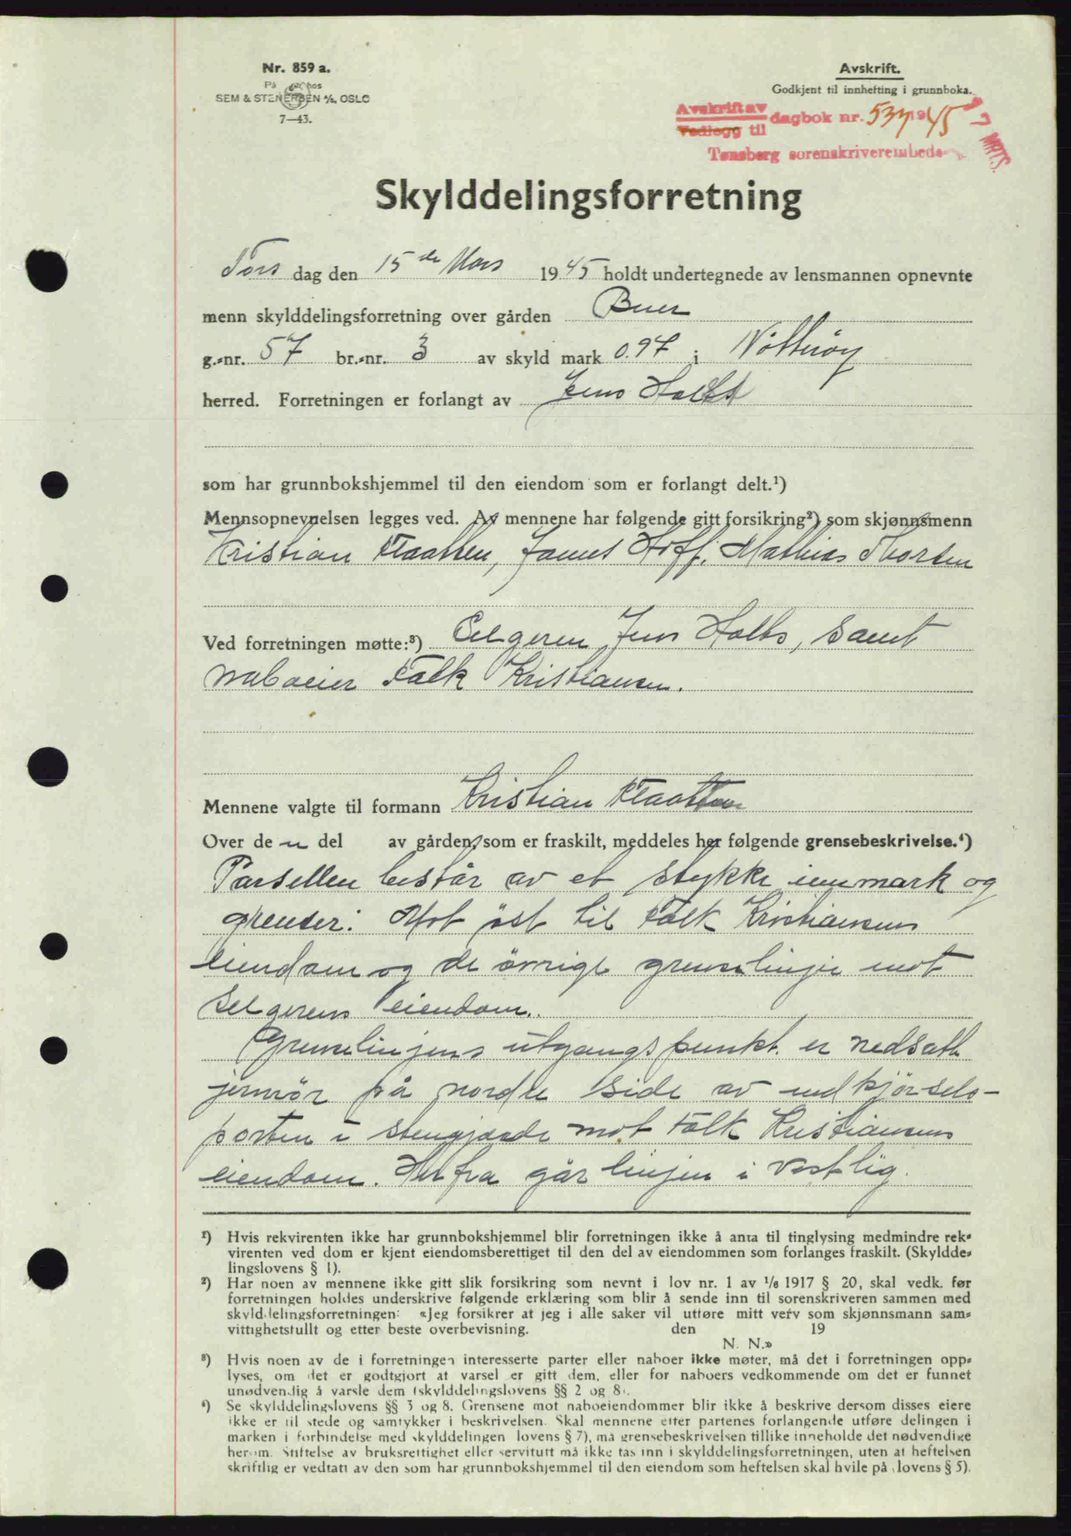 Nr. 859 a.
På hos
SEM & STENERSEN A/S, OSLO
7—43.
Avskrift.
Godkjent til innhefting i grunnboka.
Avskrift av
Vedlegg til dagbok nr. 537 1945
Tønsberg sorenskriverembede
17 MRTS.
Skylddelingsforretning
Tors dag den 15de Mars 1945 holdt undertegnede av lensmannen opnevnte
menn skylddelingsforretning over gården Buer
g.-nr. 57 br.-nr. 3 av skyld mark 0.97 i Nøtterøy
herred. Forretningen er forlangt av Jens Holts
som har grunnbokshjemmel til den eiendom som er forlangt delt.¹)
Mennsopnevnelsen legges ved. Av mennene har følgende gitt forsikring²) som skjønnsmenn
Kristian Flaatten, James Hoff, Mathias Thorsen
Ved forretningen møtte:³) Selgeren Jens Holts, samt
naboeier Falk Kristiansen.
Mennene valgte til formann Kristian Flaatten
Over de n del av gården, som er fraskilt, meddeles her følgende grensebeskrivelse.⁴)
Parsellen består av et stykke innmark og
grenser: Mot øst til Falk Kristiansens
eiendom og de øvrige grenselinjer mot
selgerens eiendom.
Grenselinjens utgangspunkt er nedsatt
jernrør på nordre side av indkjørsels-
porten i stengjærde mot Falk Kristiansens
eiendom. Herfra går linjen i vestlig
¹) Hvis rekvirenten ikke har grunnbokshjemmel blir forretningen ikke å anta til tinglysing medmindre rek-
virenten ved dom er kjent eiendomsberettiget til den del av eiendommen som forlanges fraskilt. (Skyldde-
lingslovens § 1).
²) Har noen av mennene ikke gitt slik forsikring som nevnt i lov nr. 1 av 1/6 1917 § 20, skal vedk. før
forretningen holdes underskrive følgende erklæring som blir å sende inn til sorenskriveren sammen med
skylddelingsforretningen: «Jeg forsikrer at jeg i alle saker vil utføre mitt verv som skjønnsmann sam-
vittighetsfullt og etter beste overbevisning. den 19
N. N.»
³) Hvis noen av de i forretningen interesserte parter eller naboer ikke møter, må det i forretningen opp-
lyses, om det er godtgjort at varsel er gitt dem, eller for naboers vedkommende om det er funnet
unødvendig å varsle dem (skylddelingslovens §§ 2 og 8).
⁴) Se skylddelingslovens §§ 3 og 8. Grensene mot naboeiendommer blir ikke å beskrive dersom disses eiere
ikke er til stede og samtykker i beskrivelsen. Skal mennene etter partenes forlangende utføre delingen i
marken i forbindelse med skylddelingen (lovens § 7), må grensebeskrivelsen tillike inneholde det nødvendige
herom. Stiftelse av bruksrettighet eller servitutt må ikke tas inn i skylddelingsforretningen, uten at heftelsen
skriftlig er vedtatt av den som har grunnbokshjemmel til den eiendom som heftelsen skal hvile på (lovens § 5).